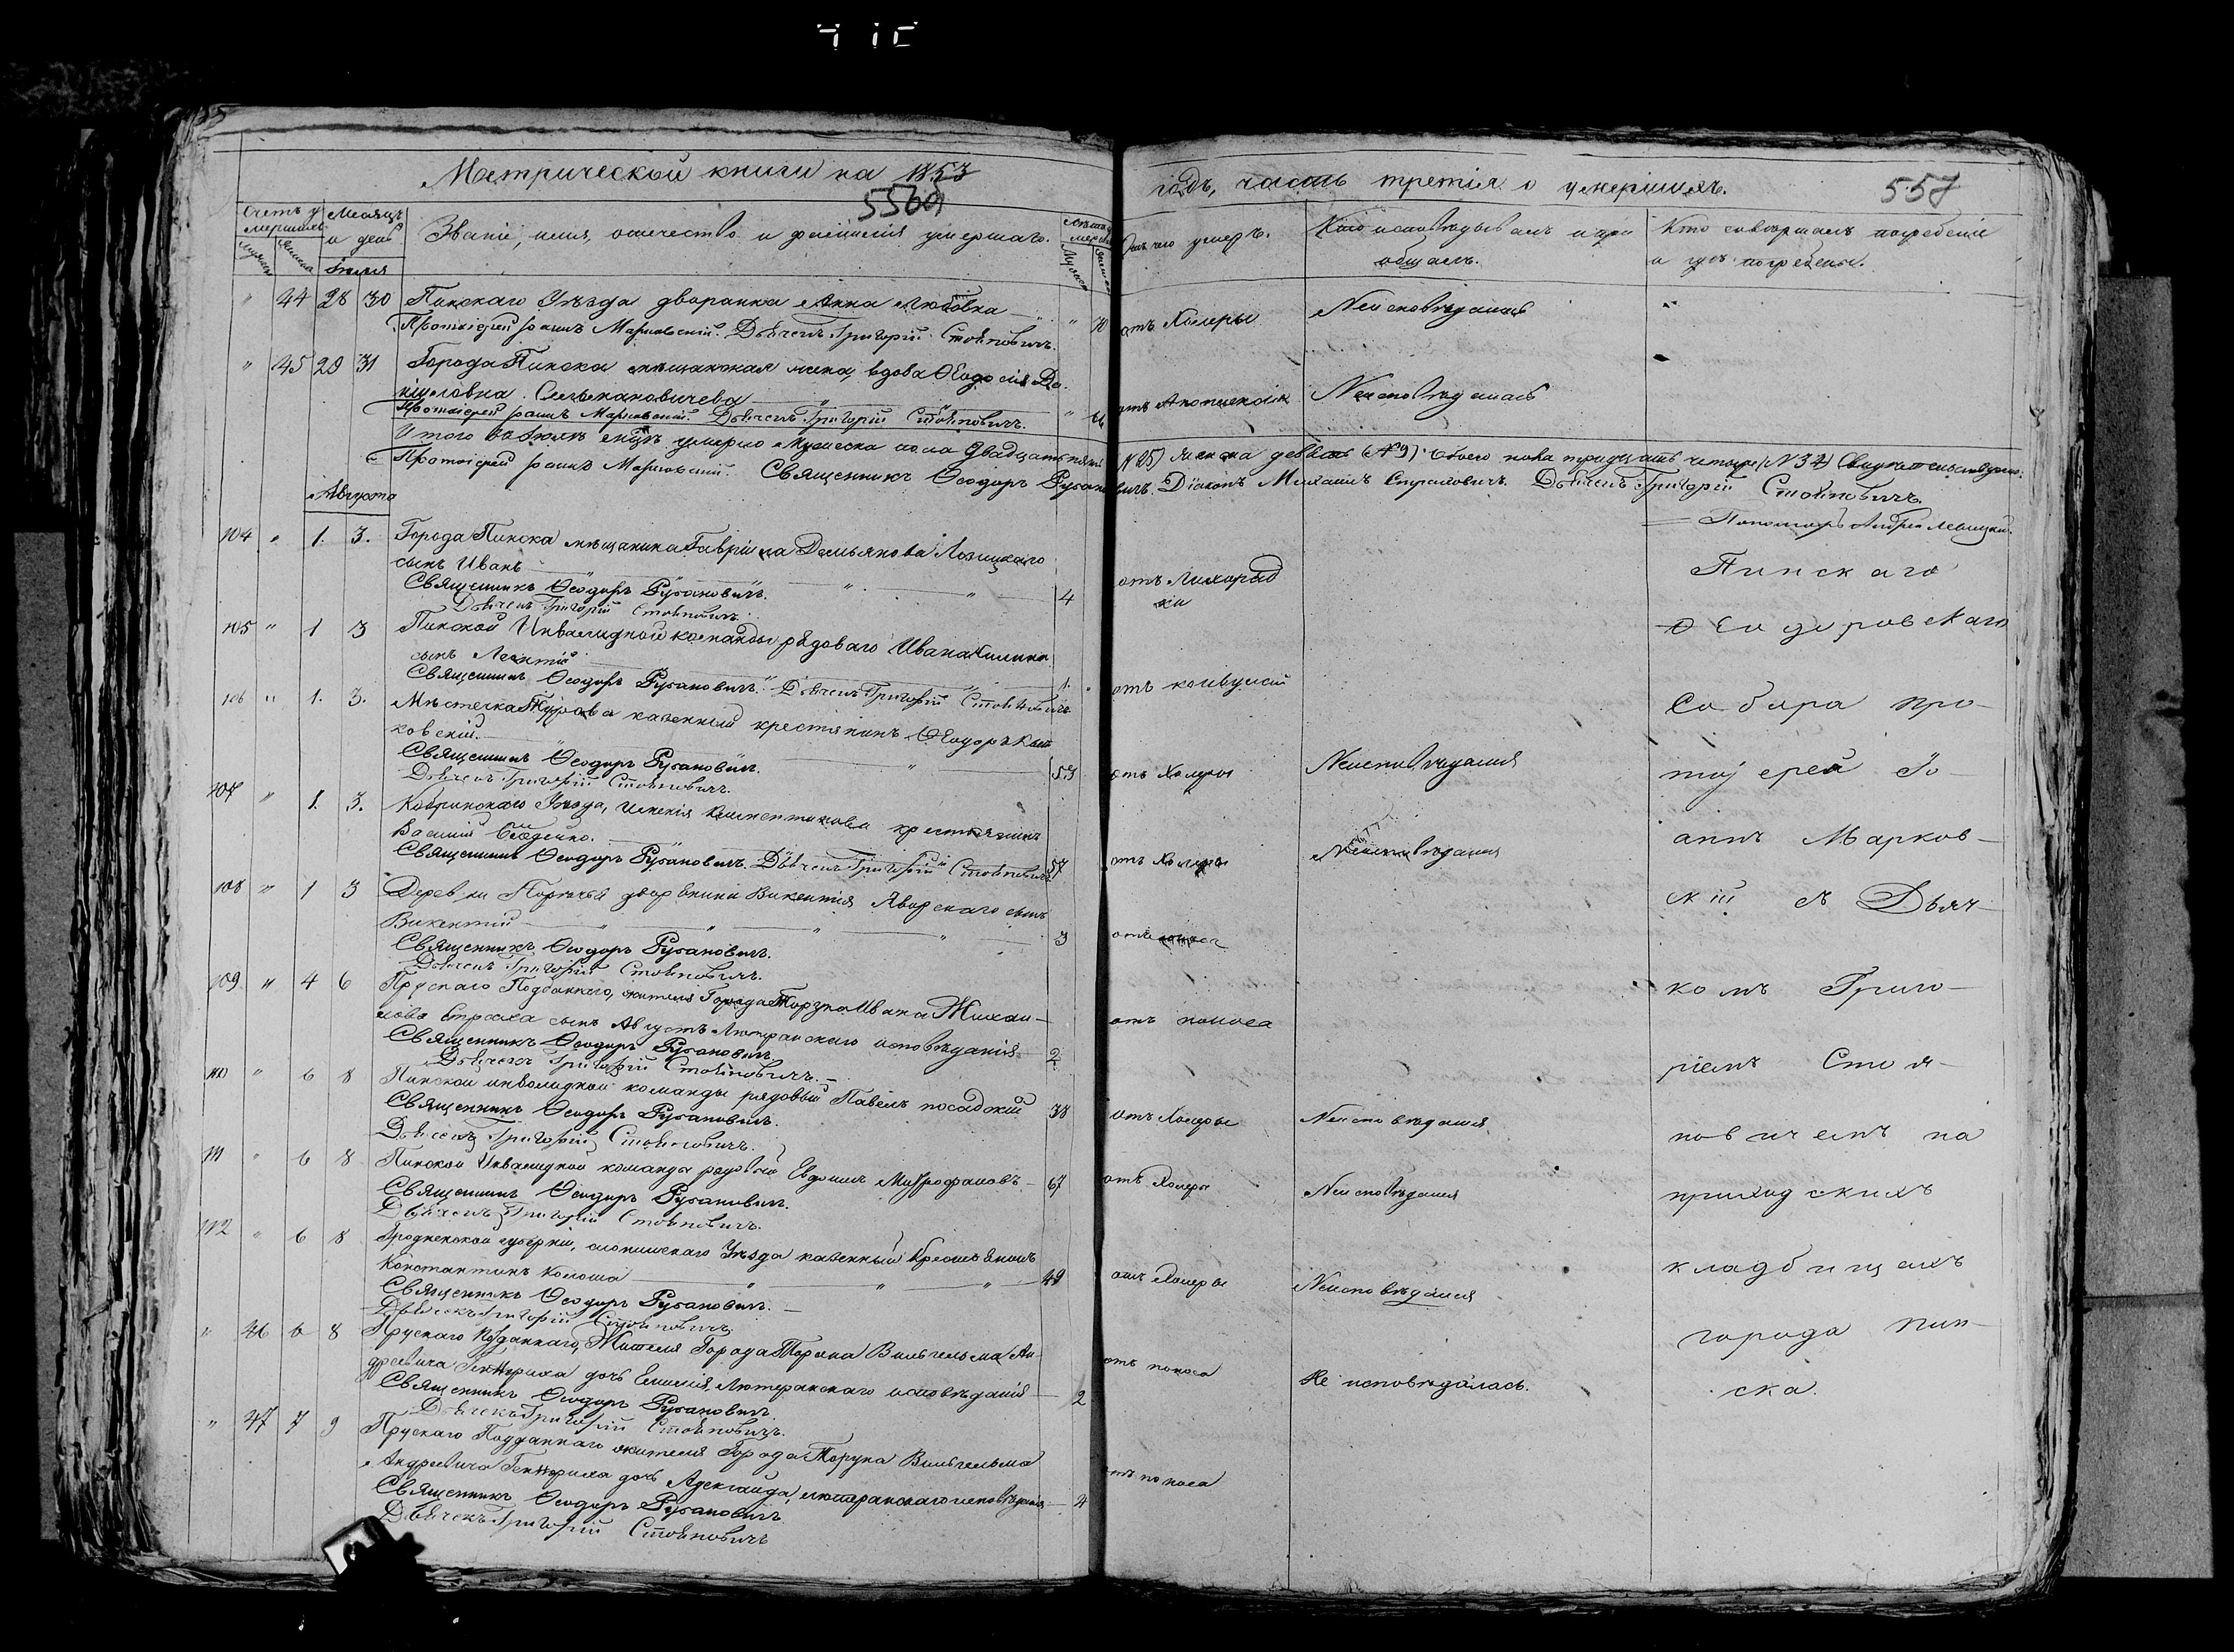 Метрической книги на 1853
годъ, часть третія о умершихъ.
556об
557
Счетъ умершихъ
Мѣсяцъ и день
Званіе, имя, отчество и фамилія умершаго.
Отъ чего умеръ.
Кто исповѣдывалъ и пріобщалъ.
Кто совершалъ погребеніе и гдѣ погребены.
Іюля
" 44 28 30 Пинскаго Уѣзда дворянка Анна
отъ Холеры
Неисповѣдана
Протоіерей Іоаннъ Марковскій. Дьячекъ Григорій Стояновичъ.
" 45 29 31 Города Пинска мѣщанская жена, вдова Ѳеодосія Да-
ниловна
Протоіерей Іоаннъ Марковскій. Дьячекъ Григорій Стояновичъ.
Итого въ Іюлѣ м-цѣ умерло мужеска пола двадцать пять (№ 25) женска девять (№ 9) обоего пола тридцать четыре (№ 34)
Протоіерей Іоаннъ Марковскій. Священникъ Ѳеодоръ Русановичъ. Діаконъ Михаилъ Дьячекъ Григорій Стояновичъ.
Пономарь Андрей Левицкій.
Августа
104 " 1. 3. Города Пинска мѣщанина Гавріила Демьянова Лозицкаго
сынъ Иванъ 4
отъ Лихорадки
Священникъ Ѳеодоръ Русановичъ.
Дьячекъ Григорій Стояновичъ.
105 " 1 3 Пинской Инвалидной команды рядоваго Ивана
сынъ Леонтій 1.
отъ конвулсій
Священникъ Ѳеодоръ Русановичъ. Дьячекъ Григорій Стояновичъ
106 " 1. 3. Мѣстечка Турова казенный крестянинъ Ѳеодоръ
ковскій. 53
отъ Холеры
Неисповѣдания
Священникъ Ѳеодоръ Русановичъ.
Дьячекъ Григорій Стояновичъ.
107 " 1. 3. Кобринскаго Уѣзда, имѣнія крестьянинъ
Василій 57
отъ Холеры
Неисповѣдания
Священникъ Ѳеодоръ Русановичъ. Дьячекъ Григорій Стояновичъ
108 " 1 3 Деревни Порѣчья дворянина Викентія Яворскаго сынъ
Викентій 3
отъ
Священникъ Ѳеодоръ Русановичъ.
Дьячекъ Григорій Стояновичъ.
109 " 4 6 Прускаго Подданнаго, жителя Города Ивана
сынъ Августъ Лютеранскаго исповѣданія 2
отъ поноса
Священникъ Ѳеодоръ Русановичъ.
Дьячекъ Григорій Стояновичъ.
110 " 6 8 Пинской инвалидной команды рядовый Павелъ посадскій 38
отъ Холеры
Неисповѣдания
Священникъ Ѳеодоръ Русановичъ.
Дьячекъ Григорій Стояновичъ.
111 " 6 8 Пинской Инвалидной команды рядовый Евдокимъ Митрофановъ 67
отъ Холеры
Неисповѣдания
Священникъ Ѳеодоръ Русановичъ.
Дьячекъ Григорій Стояновичъ.
112 " 6 8 Гродненской губерніи, слонимскаго Уѣзда казенный Крестьянинъ
Константинъ Колоша 49
отъ Холеры
Неисповѣдания
Священникъ Ѳеодоръ Русановичъ.
Дьячекъ Григорій Стояновичъ
" 46 6 8 Прускаго Подданнаго, Жителя Города Торуна Вильгельма Ан-
дреевича Генриха дочь Емилія, Лютеранскаго исповѣданія 2
отъ поноса
Не исповѣдалась.
Священникъ Ѳеодоръ Русановичъ.
Дьячекъ Григорій Стояновичъ.
" 47 7 9 Прускаго Подданнаго жителя Города Торуна Вильгельма
Андреевича Генриха дочь Аделаида, лютеранскаго исповѣданія 4
отъ поноса
Священникъ Ѳеодоръ Русановичъ
Дьячекъ Григорій Стояновичъ
Пинскаго
Ѳеодоровскаго
Собора про-
тоіерей Іо-
аннъ Марков-
скій съ Дьяч-
комъ Григо-
ріемъ Стоя-
новичемъ на
приходскихъ
кладбищахъ
города Пин-
ска.